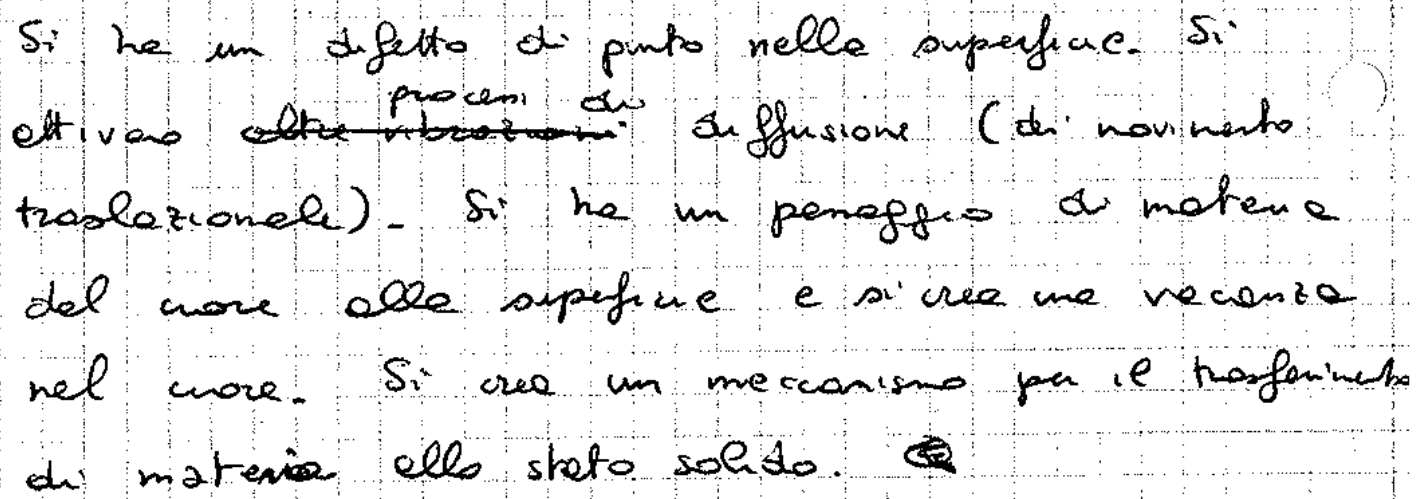 Si ha un difetto di punto nella superficie. Si
attivano processi di diffusione (di movimento
traslazionale). Si ha un passaggio di materia
dal cuore alla superficie e si crea una vacanza
nel cuore. Si crea un meccanismo per il trasferimento
di materia allo stato solido.